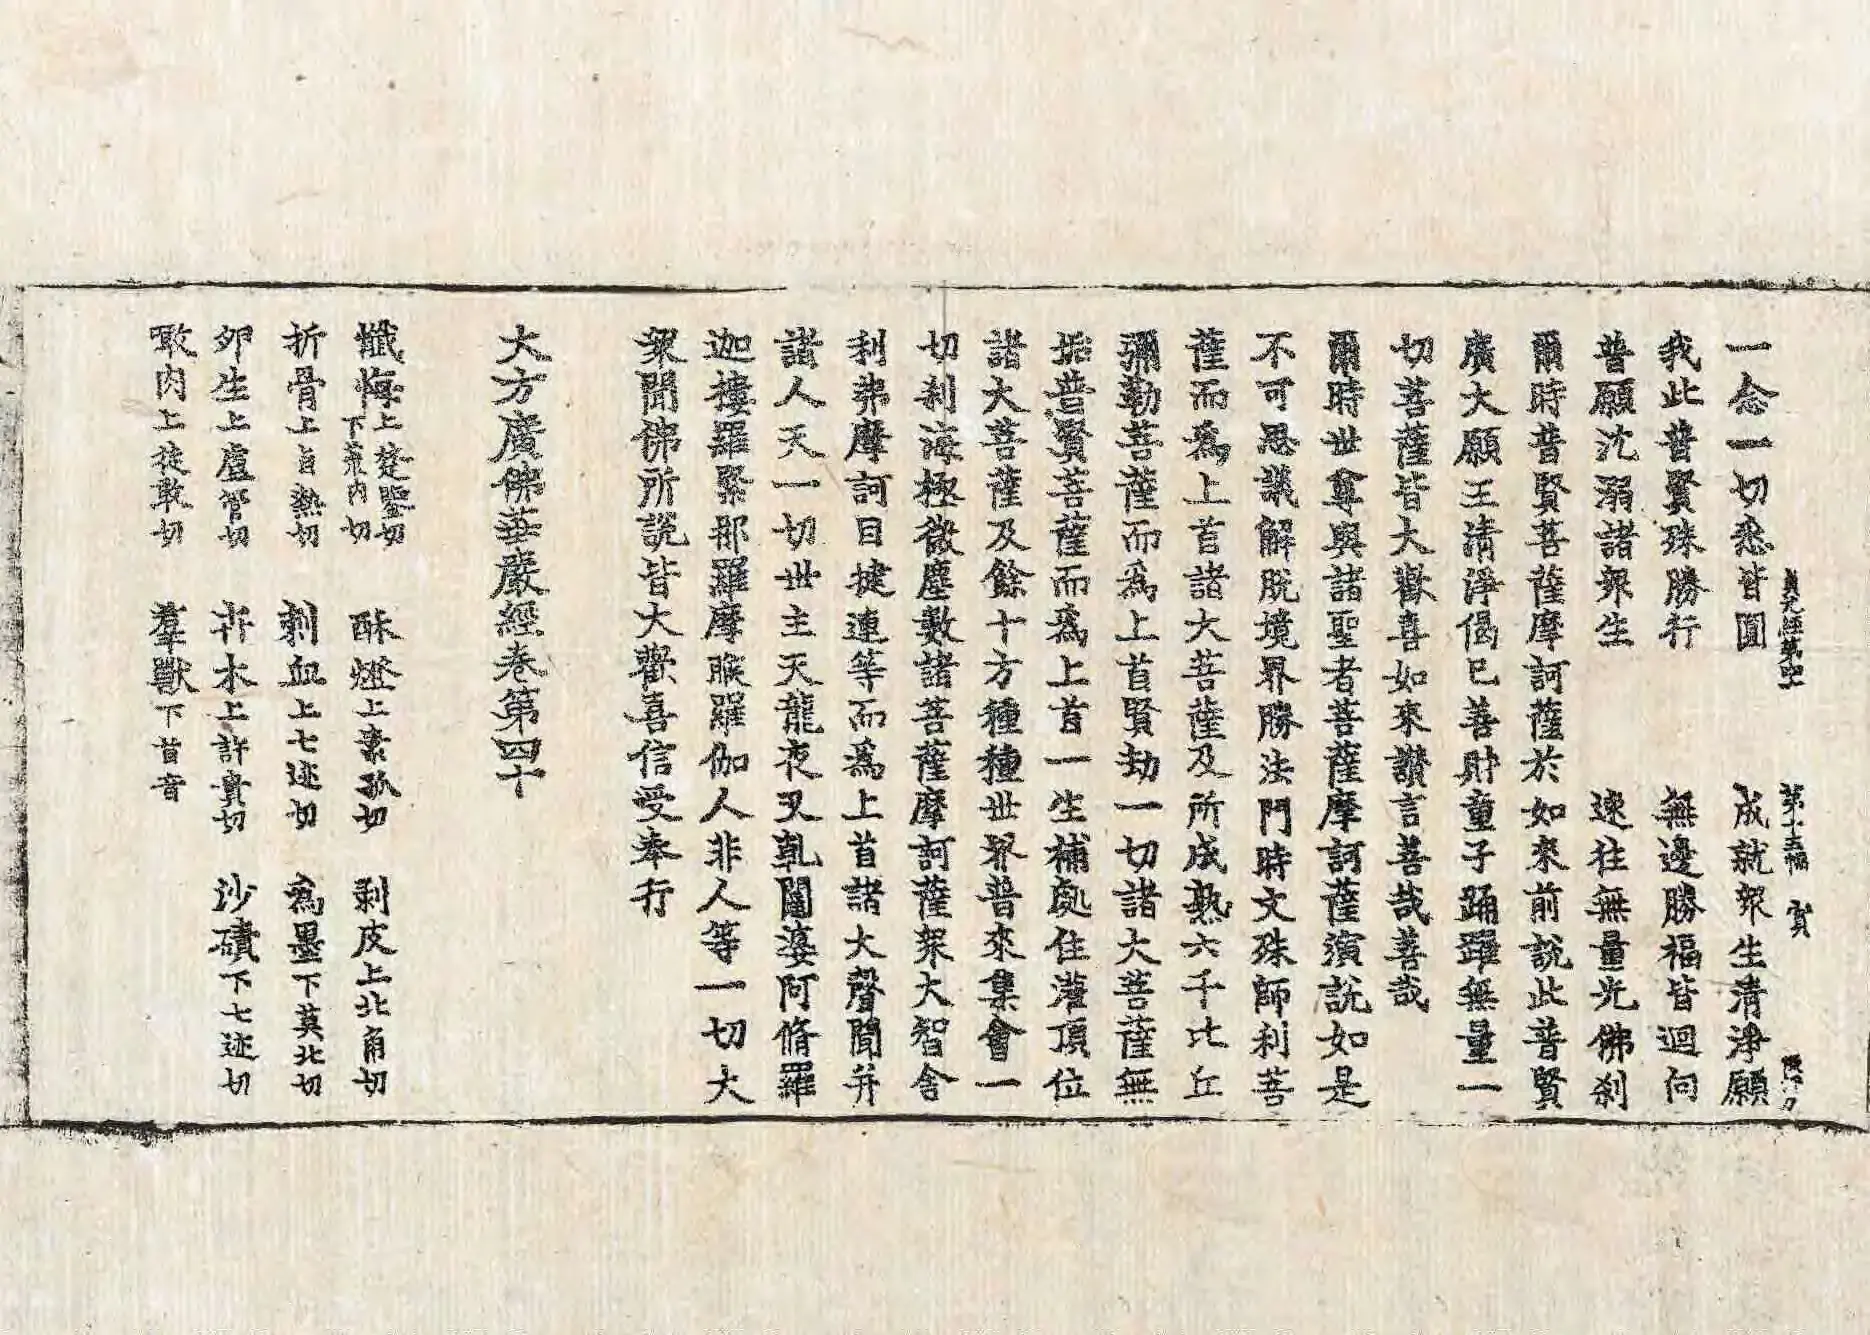 一念一切悉皆圓　成就衆生清淨願
貞元經第四十　第十五幅　賓
我此普賢殊勝行　無邊勝福皆迴向
普願沈溺諸衆生　速往無量光佛刹
爾時普賢菩薩摩訶薩於如來前說此普賢
廣大願王清淨偈已善財童子踊躍無量一
切菩薩皆大歡喜如來讃言善哉善哉
爾時世尊與諸聖者菩薩摩訶薩演說如是
不可思議解脫境界勝法門時文殊師利菩
薩而爲上首諸大菩薩及所成熟六千比丘
彌勒菩薩而爲上首賢劫一切諸大菩薩無
垢普賢菩薩而爲上首一生補處住灌頂位
諸大菩薩及餘十方種種世界普來集會一
切刹海極微塵數諸菩薩摩訶薩衆大智舍
利弗摩訶目揵連等而爲上首諸大聲聞并
諸人天一切世主天龍夜叉乹闥婆阿脩羅
迦樓羅緊那羅摩睺羅伽人非人等一切大
衆聞佛所說皆大歡喜信受奉行
大方廣佛華嚴經卷第四十
懺悔上楚鑒切下荒内切　酥燈上素孤切　剥皮上北角切
折骨上旨熱切　刺血上七迹切　爲墨下莫北切
卵生上盧管切　卉木上許貴切　沙磧下七迹切
噉肉上徒敢切　羣獸下首音